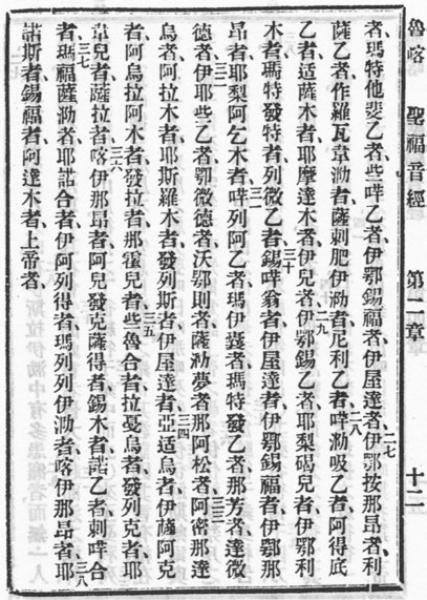 魯喀 聖福音經 第二章 十二
者、瑪特他斐乙者、些哶乙者、伊鄂錫福者、伊屋達者、二七伊鄂按那昂者、利
薩乙者、作羅瓦韋泐者、薩剌肥伊泐者、尼利乙者、二八哶泐吸乙者、阿得底
乙者、适薩木者、耶摩達木者、伊兒者、二九伊鄂錫乙者、耶梨碣兒者、伊鄂利
木者、瑪特發特者、列微乙者、三十錫哶翁者、伊屋達者、伊鄂錫福者、伊鄂那
昂者、耶梨阿乞木者、三一哶列阿乙者、瑪伊者、瑪特發乙者、那芳者、達微
德者、三二伊耶些乙者、鄂微德者、沃鄂則者、薩泐夢者、那阿松者、三三阿密那達
烏者、阿拉木者、耶斯羅木者、發列斯者、伊屋達者、三四亞适烏者、伊薩阿克
者、阿烏拉阿木者、發拉者、那霍兒者、三五些魯合者、拉戞烏者、發列克者、耶
韋兒者、薩拉者、三六喀伊那昂者、阿兒發克薩得者、錫木者、諾乙者、剌哶合
者、三七瑪福薩泐者、耶諾合者、伊阿列得者、瑪列列伊泐者、喀伊那昂者、三八耶
諾斯者、錫福者、阿達木者、上帝者、